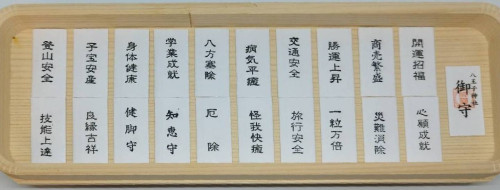 八王子神社
御守
開運招福
心願成就
商売繁盛
災難消除
勝運上昇
一粒万倍
交通安全
旅行安全
病気平癒
怪我快癒
八方塞除
厄除
学業成就
知恵守
身体健康
健脚守
子宝安産
良縁吉祥
登山安全
技能上達